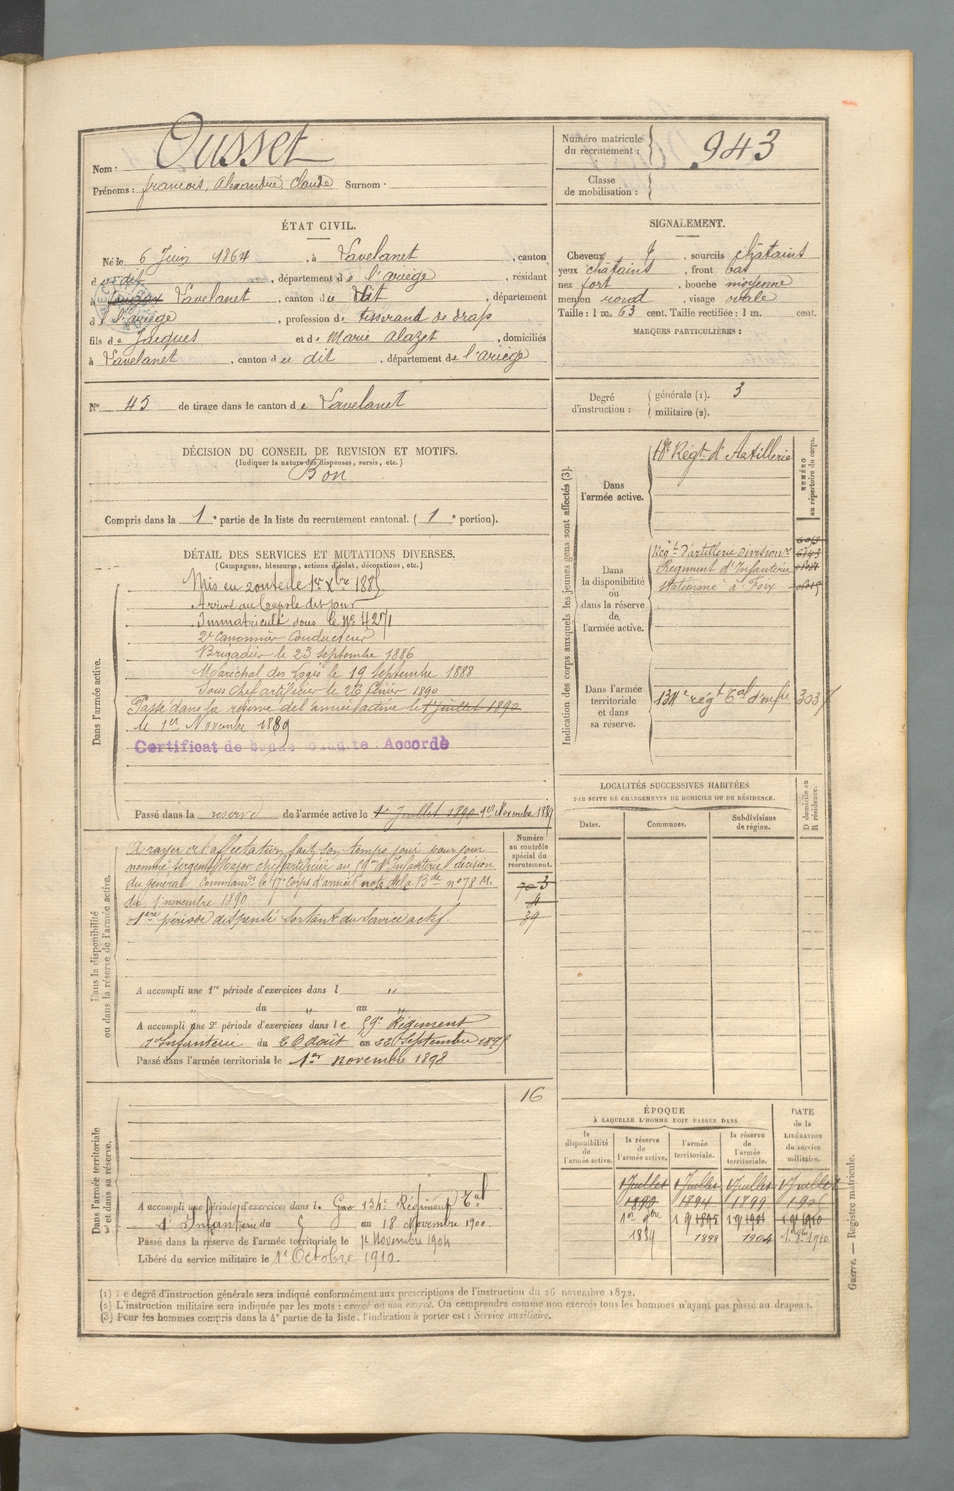 Nom : Ousset
Prénoms : françois, Alexandre Claude Surnom :
Numéro matricule du recrutement : 943
Classe de mobilisation :
ÉTAT CIVIL.
Né le 6 Juin 1864, à Lavelanet, canton
du dit, département de l'ariège, résidant
à Lavelanet, canton du dit, département
de l'ariège, profession de tisserand de draps
fils de Jacques et de Marie Alazet, domiciliés
à Lavelanet, canton du dit, département de l'ariège
N° 45 de tirage dans le canton de Lavelanet
SIGNALEMENT.
Cheveux sourcils châtains
yeux châtains, front bas
nez fort, bouche moyenne
menton rond, visage ovale
Taille : 1 m. 63 cent. Taille rectifiée : 1 m. cent.
MARQUES PARTICULIÈRES :
Degré d'instruction : générale (1). 3
militaire (2).
DÉCISION DU CONSEIL DE REVISION ET MOTIFS.
(Indiquer la nature des dispenses, sursis, etc.)
Bon
Compris dans la 1e partie de la liste du recrutement cantonal. (1e portion).
DÉTAIL DES SERVICES ET MUTATIONS DIVERSES.
(Campagnes, blessures, actions d'éclat, décorations, etc.)
Dans l'armée active.
Mis en route le 1er Xbre 1885
Arrivé au Corps le dit jour
Immatriculé sous le N° 4271
2e Canonnier Conducteur
Brigadier le 23 Septembre 1886
Maréchal des Logis le 19 Septembre 1888
Sous chef artificier le 26 février 1890
Passé dans la réserve de l'armée active le 1er Juillet 1890
le 1er Novembre 1889
Certificat de bonne conduite Accordé
Passé dans la réserve de l'armée active le 1er Juillet 1890 1er Novembre 1889
Indication des corps auxquels les jeunes gens sont affectés (3).
NUMÉRO au répertoire du corps.
Dans l'armée active.
18e Régt d'Artillerie
Dans la disponibilité ou dans la réserve de l'armée active.
Régt d'artillerie divisionre
Régiment d'Infanterie
stationné à Foix
Dans l'armée territoriale et dans sa réserve.
134e régt Tal d'infie 3037
LOCALITÉS SUCCESSIVES HABITÉES
PAR SUITE DE CHANGEMENTS DE DOMICILE OU DE RÉSIDENCE.
Dates. Communes. Subdivisions de région. D domicile ou R résidence.
Dans la disponibilité ou dans la réserve de l'armée active.
Numéro au contrôle spécial du recrutement.
A rayer de l'affectation fait son temps jour pour jour
nommé Sergent Major chef artificier au 59me d'Infanterie décision
du général Commandt le 17e corps d'armée note de la Bde n° 78 M.
du 1 novembre 1890
1ère période dispensé sortant du service actif.
39
A accompli une 1re période d'exercices dans l "
" du " au "
A accompli une 2e période d'exercices dans le 59e Régiment
d'Infanterie du 26 août au 22 Septembre 1895
Passé dans l'armée territoriale le 1er novembre 1898
Dans l'armée territoriale et dans sa réserve.
16
A accompli une période d'exercices dans le 134e Régiment Tal
d'Infanterie du 5 au 18 Novembre 1900.
Passé dans la réserve de l'armée territoriale le 1er Novembre 1904
Libéré du service militaire le 1er Octobre 1910.
ÉPOQUE À LAQUELLE L'HOMME DOIT PASSER DANS
DATE de la LIBÉRATION du service militaire.
la disponibilité de l'armée active. la réserve de l'armée active. l'armée territoriale. la réserve de l'armée territoriale.
1 Juillet 1 Juillet 1 Juillet 1 Juillet
1890 1894 1899
1889 1898 1904 1910
(1) Le degré d'instruction générale sera indiqué conformément aux prescriptions de l'instruction du 26 novembre 1872.
(2) L'instruction militaire sera indiquée par les mots : exercé ou non exercé. On comprendra comme non exercés tous les hommes n'ayant pas passé au drapeau.
(3) Pour les hommes compris dans la 4e partie de la liste, l'indication à porter est : Service auxiliaire.
Guerre. — Registre matricule.